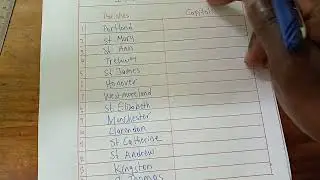 Parishes Capital
Portland
St. Mary
St. Ann
Trelawny
St. James
Hanover
Westmoreland
St. Elizabeth
Manchester
Clarendon
St. Catherine
St. Andrew
Kingston
St. Thomas